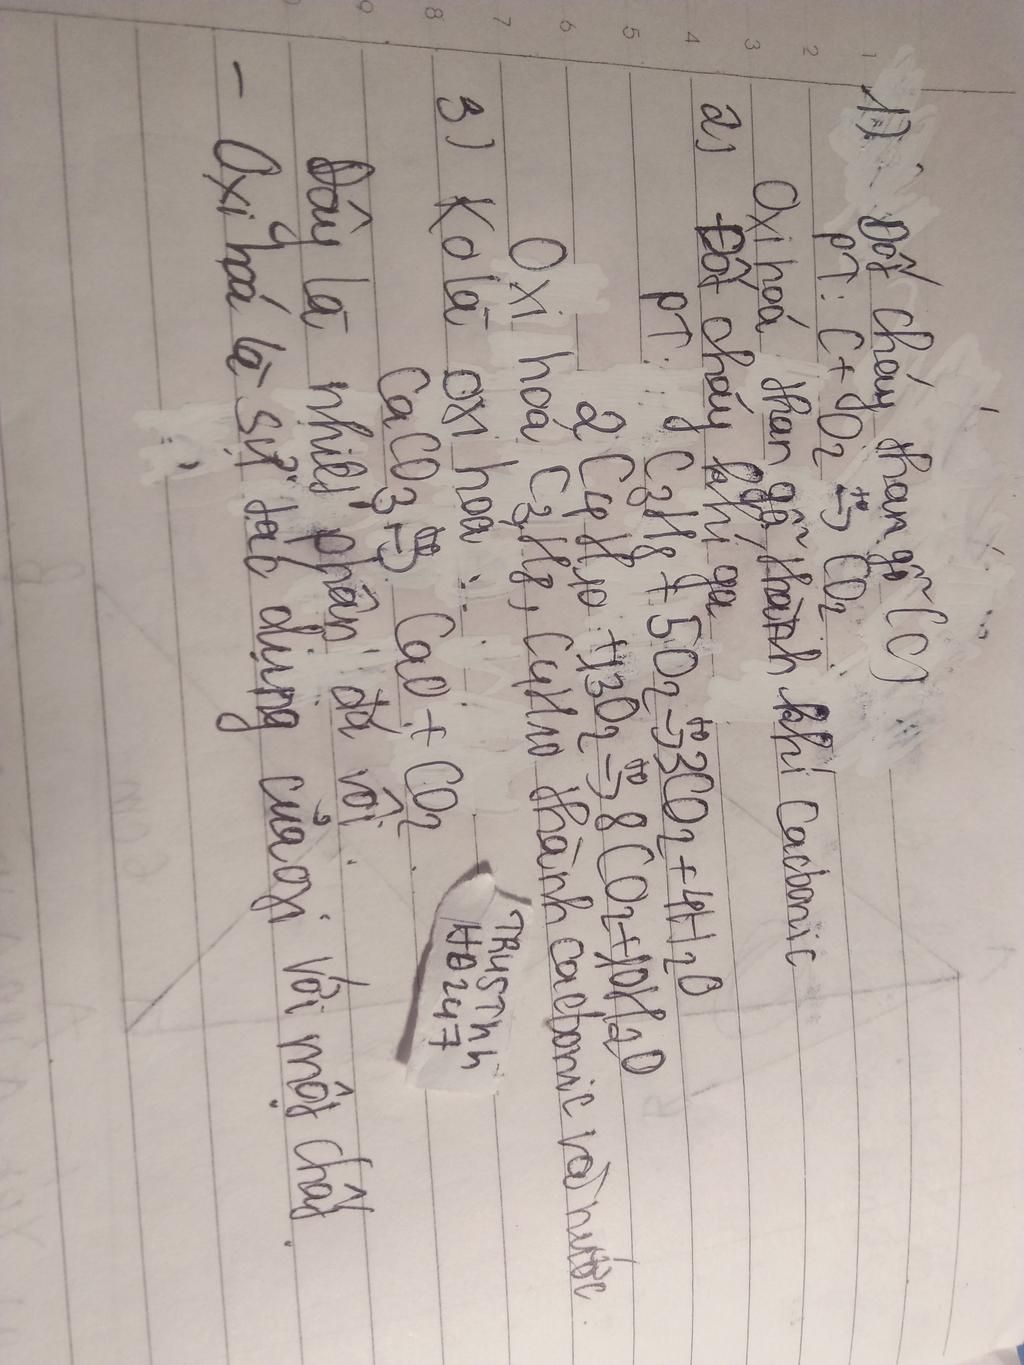 1) Đốt cháy than gỗ (C)
PT: C + O2 t°→ CO2
Oxi hoá than gỗ thành khí cacbonic
2) Đốt cháy khí ga
PT: C3H8 + 5O2 t°→ 3CO2 + 4H2O
2C4H10 + 13O2 t°→ 8CO2 + 10H2O
Oxi hoá C3H8, C4H10 thành cacbonic và nước
3) Ko là oxi hoá:
CaCO3 t°→ CaO + CO2
TRUSTnh
HĐ247
Đây là nhiệt phân đá vôi.
- Oxi hoá là sự tác dụng của oxi với một chất.
1
2
3
4
5
6
7
8
9